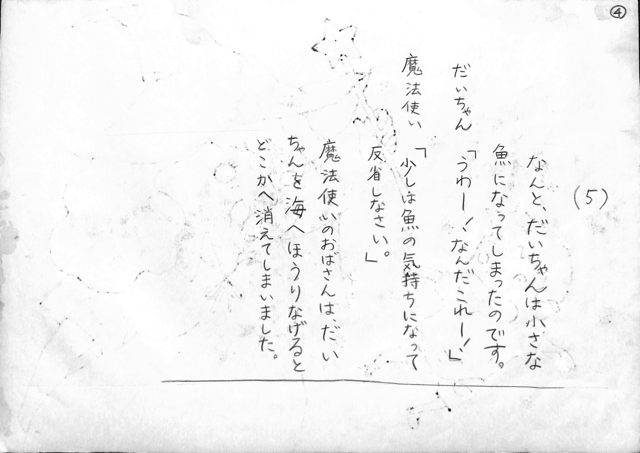 ④
（5）
なんと、だいちゃんは小さな
魚になってしまったのです。
だいちゃん「うわー！なんだこれー！」
魔法使い「少しは魚の気持ちになって
反省しなさい。」
魔法使いのおばさんは、だい
ちゃんを海へほうりなげると
どこかへ消えてしまいました。